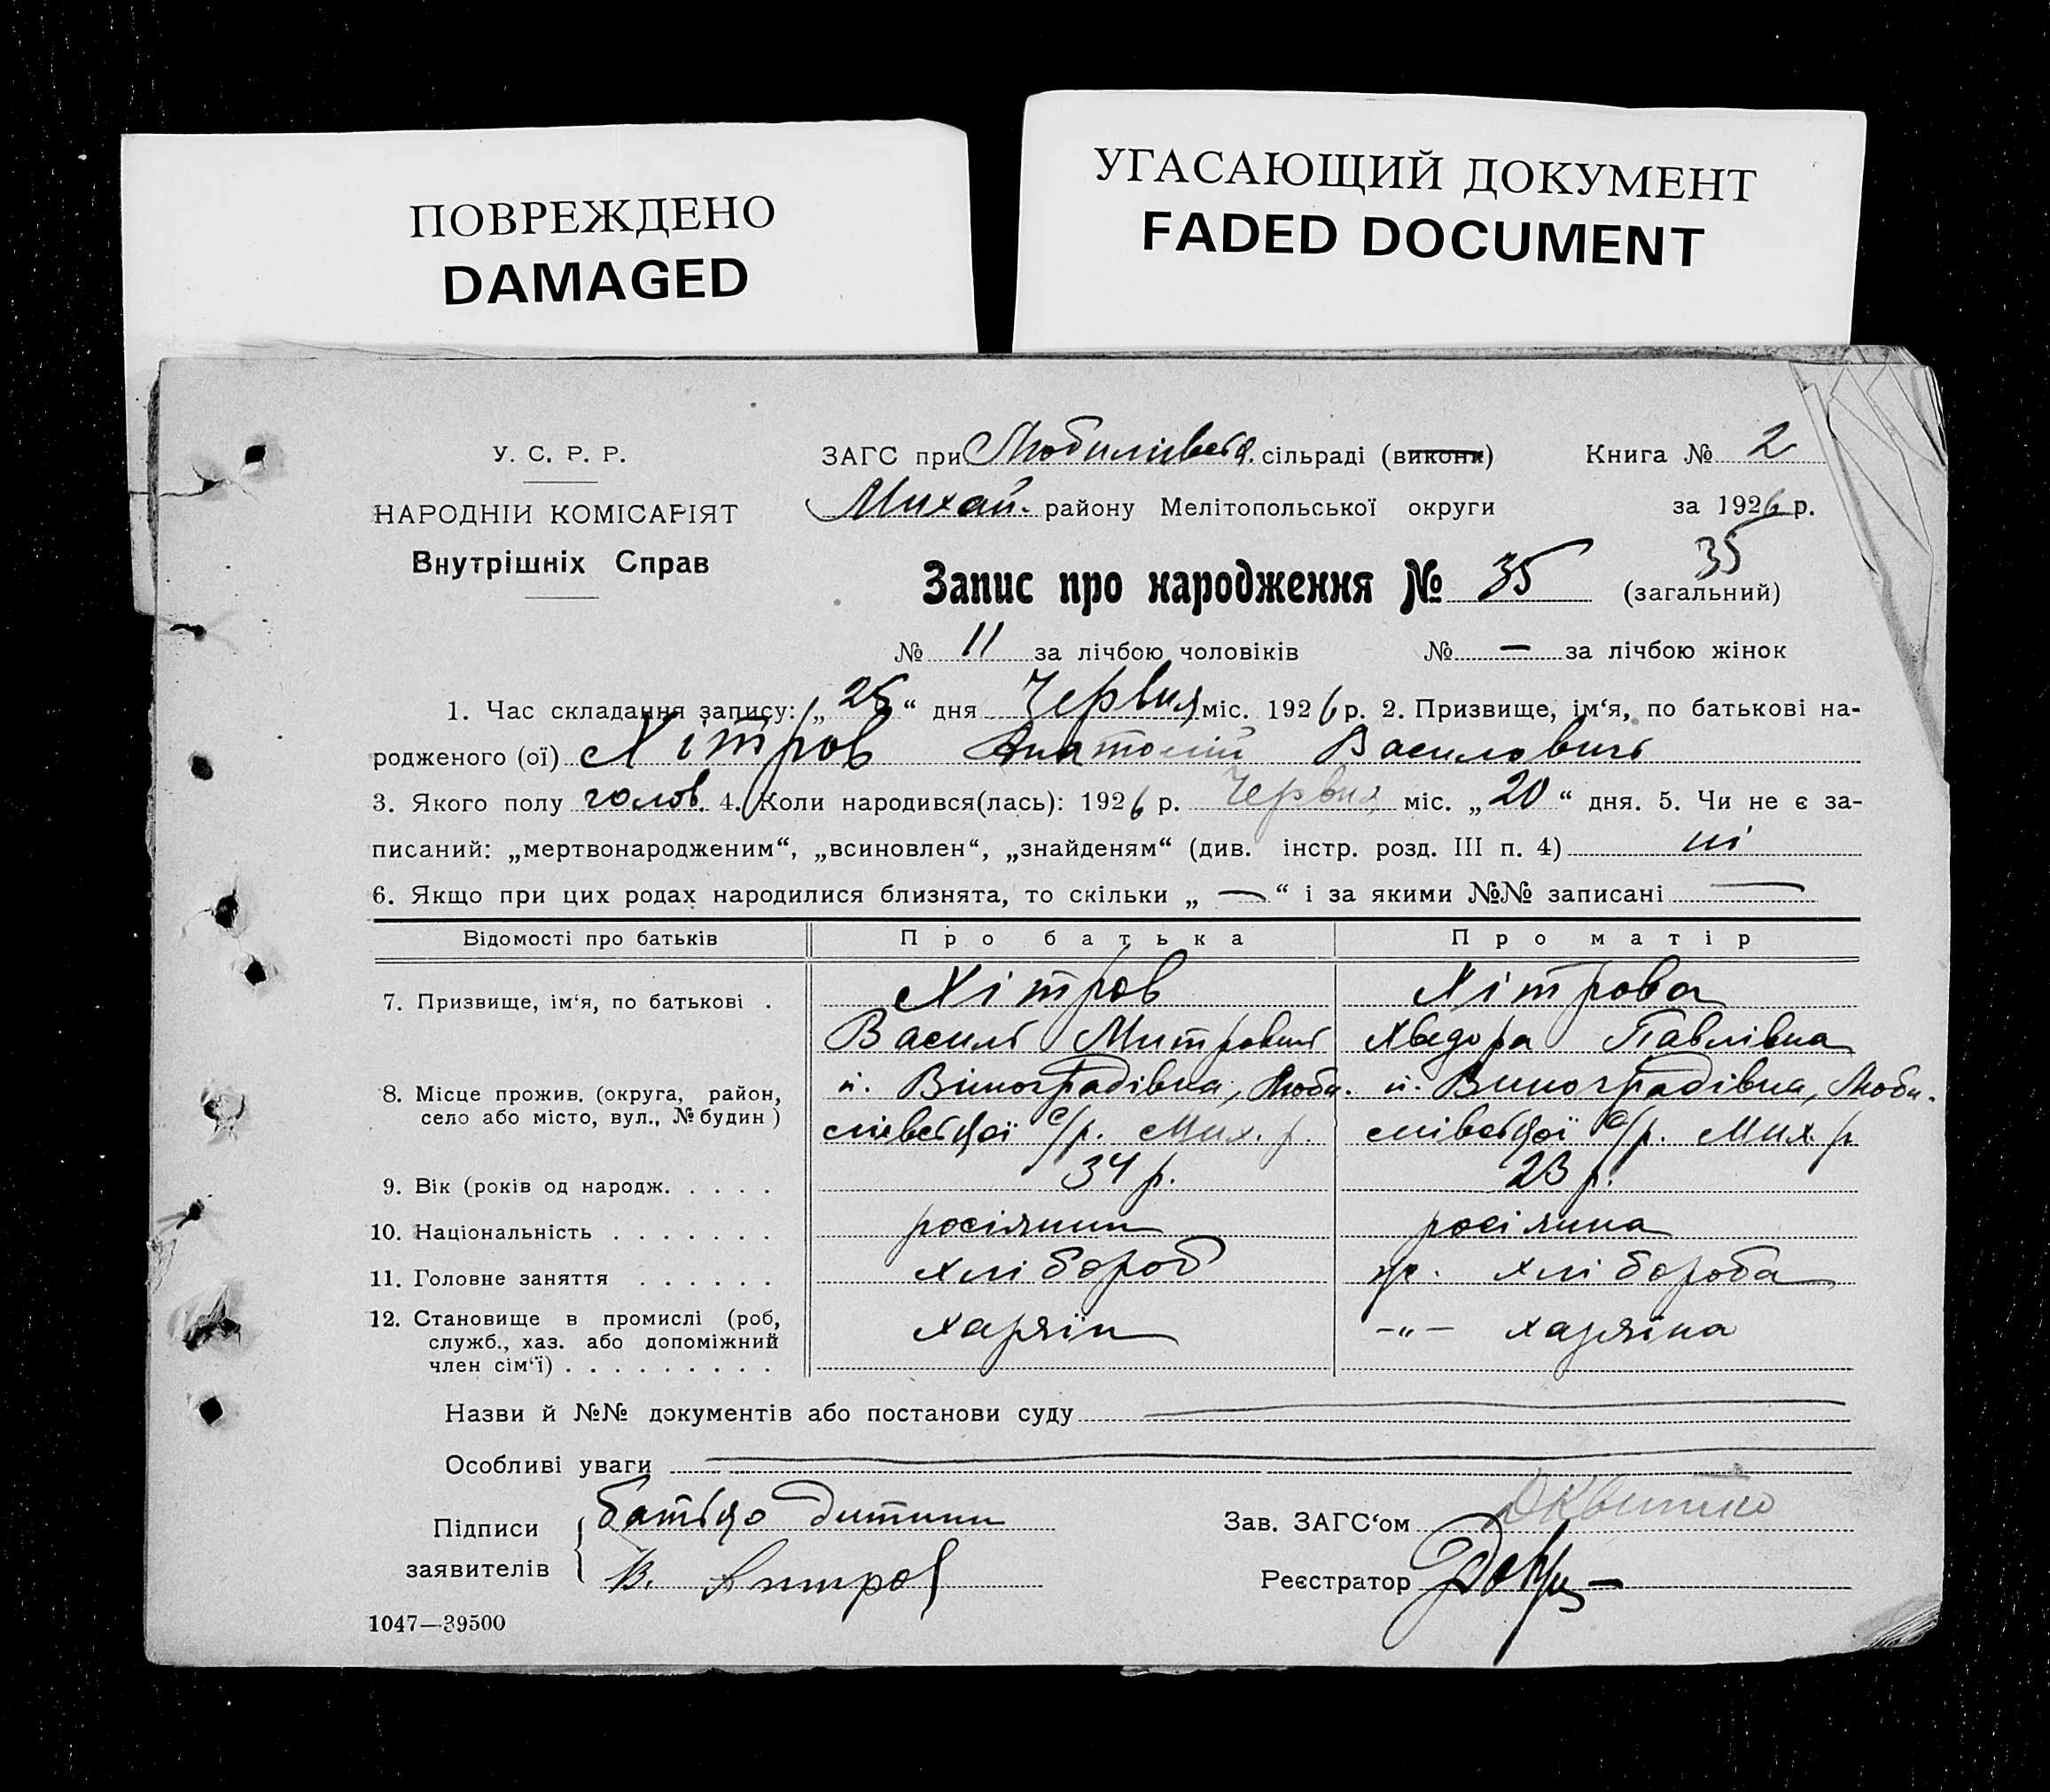 ПОВРЕЖДЕНО
DAMAGED
УГАСАЮЩИЙ ДОКУМЕНТ
FADED DOCUMENT
У. С. Р. Р.
НАРОДНІЙ КОМІСАРІЯТ
Внутрішніх Справ
ЗАГС при Любимівській сільраді (викони)
Михай. району Мелітопольської округи
Книга № 2
за 1926 р.
35
Запис про народження № 35 (загальний)
№ 11 за лічбою чоловіків № — за лічбою жінок
1. Час складання запису: „25“ дня Червня міс. 1926 р. 2. Призвище, ім‘я, по батькові на-
родженого (ої) Хітров Анатолій Василович
3. Якого полу чолов. 4. Коли народився(лась): 1926 р. Червня міс. „20“ дня. 5. Чи не є за-
писаний: „мертвонародженим“, „всиновлен“, „знайденям“ (див. інстр. розд. III п. 4) ні
6. Якщо при цих родах народилися близнята, то скільки „ — “ і за якими №№ записані —
Відомості про батьків Про батька Про матір
7. Призвище, ім‘я, по батькові . Хітров Хітрова
Василь Митрович Хведора Павлівна
8. Місце прожив. (округа, район, село або місто, вул., № будин ) п. Віноградівка, Люби- п. Виноградівка, Люби-
мівської с/р. Мих. р. мівської с/р. Мих. р
9. Вік (років од народж. . . . . 34 р. 23 р.
10. Національність . . . . . . . росіянин росіянка
11. Головне заняття . . . . . . хлібороб пр. хлібороба
12. Становище в промислі (роб,
служб., хаз. або допоміжний
член сім‘ї) . . . . . . . . . хазяїн -„- хазяїна
Назви й №№ документів або постанови суду
Особливі уваги
Підписи заявителів батько дитини
В. Хитров
Зав. ЗАГС‘ом
Реєстратор
1047—39500